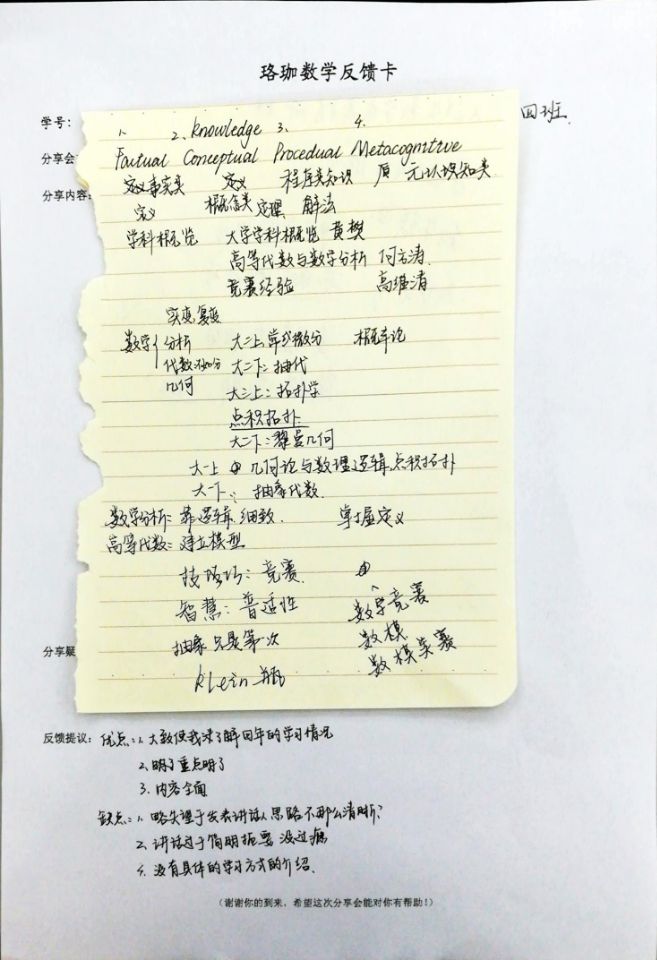 珞珈数学反馈卡
学号:
四班
分享会
分享内容:
1. 2. knowledge 3. 4.
Factual Conceptual Procedual Metacognitive
事实类 定义 程序类知识 元认知类
定义 概念类 定理 解法
学科概览 大学学科概览 黄樊
高等代数与数学分析 何方涛
竞赛经验 高维清
实变 复变
数学 分析 大二上:常微分 概率论
代数 大二下:抽代
几何 大三上:拓扑学
点积拓扑
大二下:黎曼几何
大一上 几何论与数理逻辑 点积拓扑
大一下: 抽象代数.
数学分析:靠逻辑.细致. 掌握定义
高等代数:建立模型
技巧:竞赛.
智慧:普适性 数学竞赛
抽象只是第一次 数模
Klein 瓶 数模竞赛
分享疑
反馈提议: 优点:1. 大致使我了解四年的学习情况
2. 重点明了
3. 内容全面
缺点:1. 略失望于发表讲话人思路不那么清晰?
2. 讲话过于简明扼要 没过瘾
4. 没有具体的学习方式的介绍.
(谢谢你的到来,希望这次分享会能对你有帮助!)